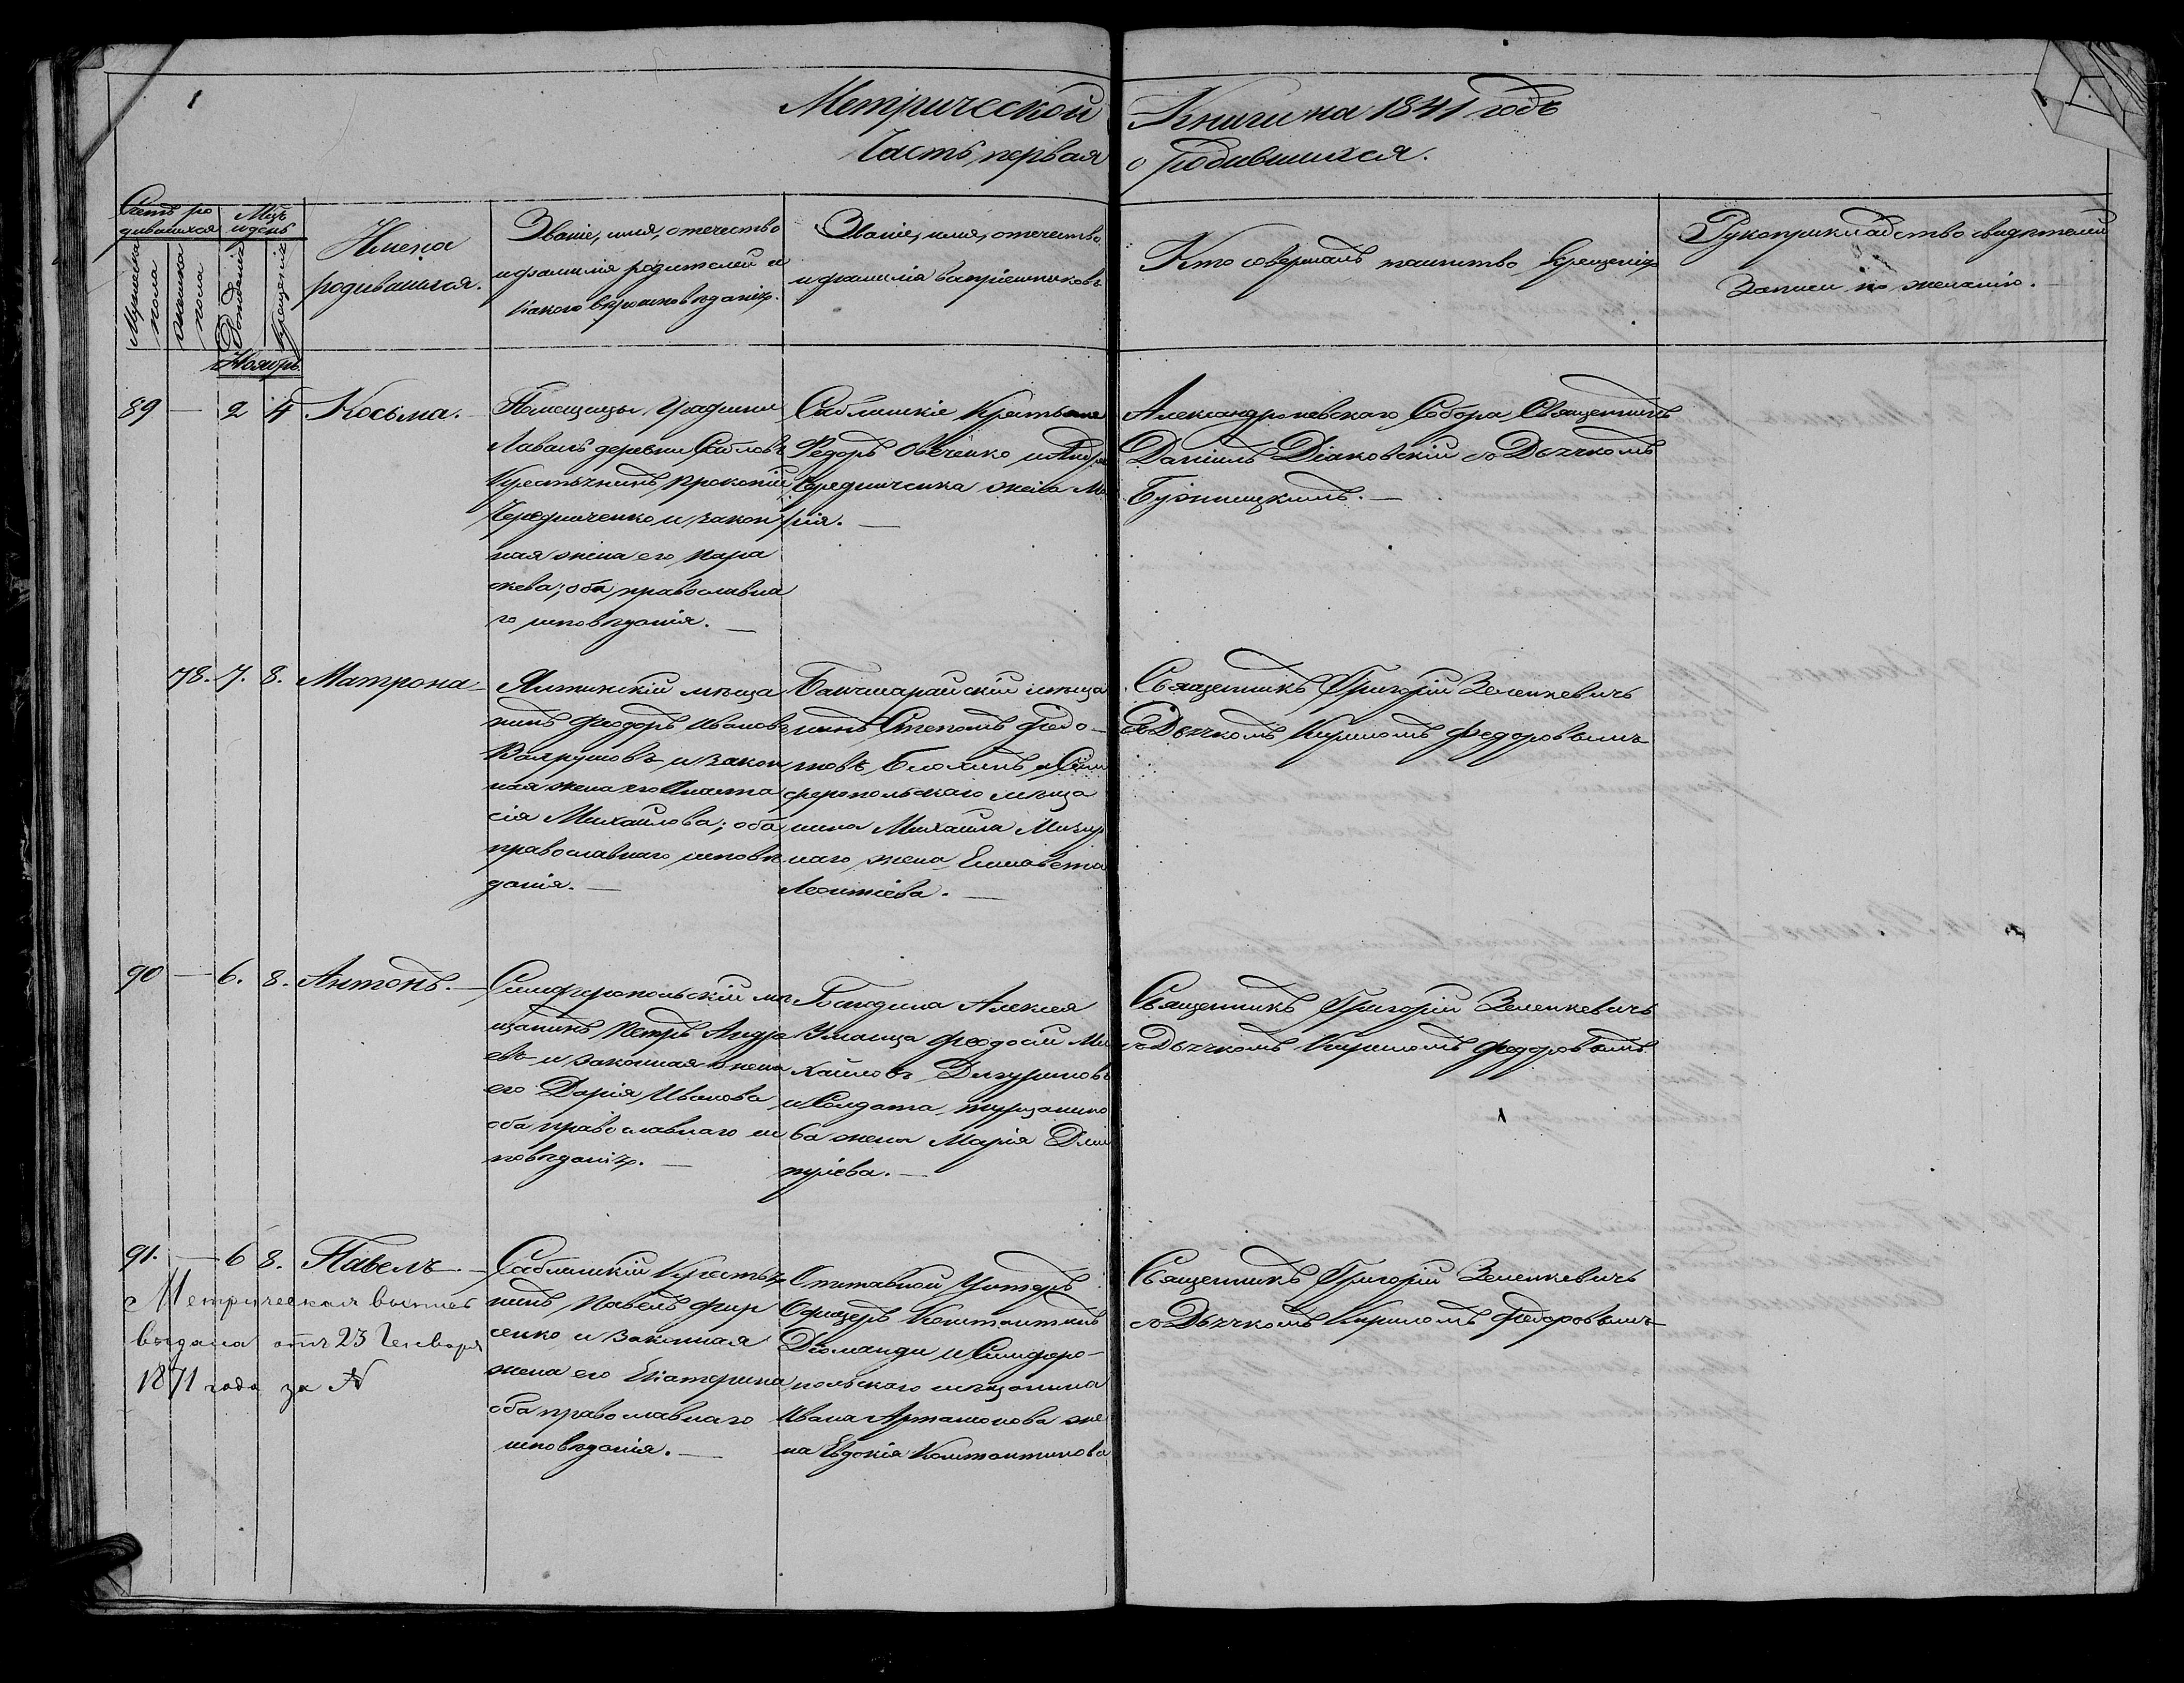 Метрической Книги на 1841 годъ
Часть первая о родившихся.
Счетъ ро
дившихся
Мужеска
пола
женска
пола
Мцъ
и день
Рожденія
Крещенія
Имена
родившихся.
Званіе, имя, отечество
и фамилія родителей и
какого вѣроисповѣданія.
Званіе, имя, отечество
и фамилія воспріемниковъ
Кто совершалъ таинство Крещенія
Рукоприкладство свидѣтелей
записи по желанію.
Ноябрь
89 — 2 4 Косьма.
Помѣщицы Графини
Лаваль деревни Сабловъ
Крестьянинъ Прокопій
Чередниченко и закон
ная жена его Пара
скева; оба православна
го исповѣданія. —
Саблинскіе Крестьяне
Федоръ Овченко и Андрея
Чередниченка жена Ма
рія. —
Александроневскаго Собора Священникъ
Даніилъ Діаковскій съ Дьячкомъ
Бужницкимъ. —
78. 7. 8. Матрона
Ялтинскій мѣща
нинъ Феодоръ Ивановъ
и закон
ная жена его Анаста
сія Михайлова; оба
православнаго исповѣ
данія. —
Бахчисарайскій мѣща
нинъ Степанъ Федо-
ровъ Блохинъ и Сим
феропольскаго мѣща
нина Михаила
наго жена Елисавета
Леонтіева. —
Священникъ Григорій Зеленкевичъ
съ Дьячкомъ Кириломъ Федоровымъ
90 — 6. 8. Антонъ. —
Симферопольскій мѣ
щанинъ Петръ Андре
евъ и законная жена
его Дарія Иванова
оба православнаго ис
повѣданія. —
Алексея
Феодосій Ми
хайловъ
и Солдата
ва жена Марія Дми
тріева. —
Священникъ Григорій Зеленкевичъ
съ Дьячкомъ Кириломъ Федоровымъ
91. — 6 8. Павелъ. —
Саблинскій Крестья
нинъ, Павелъ Фир
сенко и законная
жена его Екатерина
оба православнаго
исповѣданія. —
Отставной Унтеръ
Офицеръ Константинъ
Діоманди и Симферо-
польскаго мѣщанина
Ивана Артамонова же
на Евдокія Константинова
Священникъ Григорій Зеленкевичъ
съ Дьячкомъ Кириломъ Федоровымъ
Метрическая выпись
выдана отъ 23 Генваря
1871 года за №